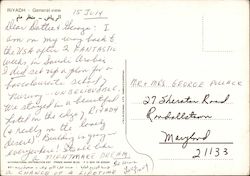 RIYADH - General view
الرياض - منظر عام
15 JULY
Dear Sallie & George: I
am on my way back to
the USA after 2 FANTASTIC
weeks in Saudi Arabia
I did set up a plan for a
baccalaureate school of
Nursing - UNBELIEVABLE.
We stayed in a beautiful
hotel in the city of RIYADH
(& really in the lonely
desert) Building is going on
everywhere!
NIGHTMARE DREAM,
A CHANCE OF A LIFETIME
MR & MRS. GEORGE
27 Sheraton Road
Randallstown
Maryland
21133